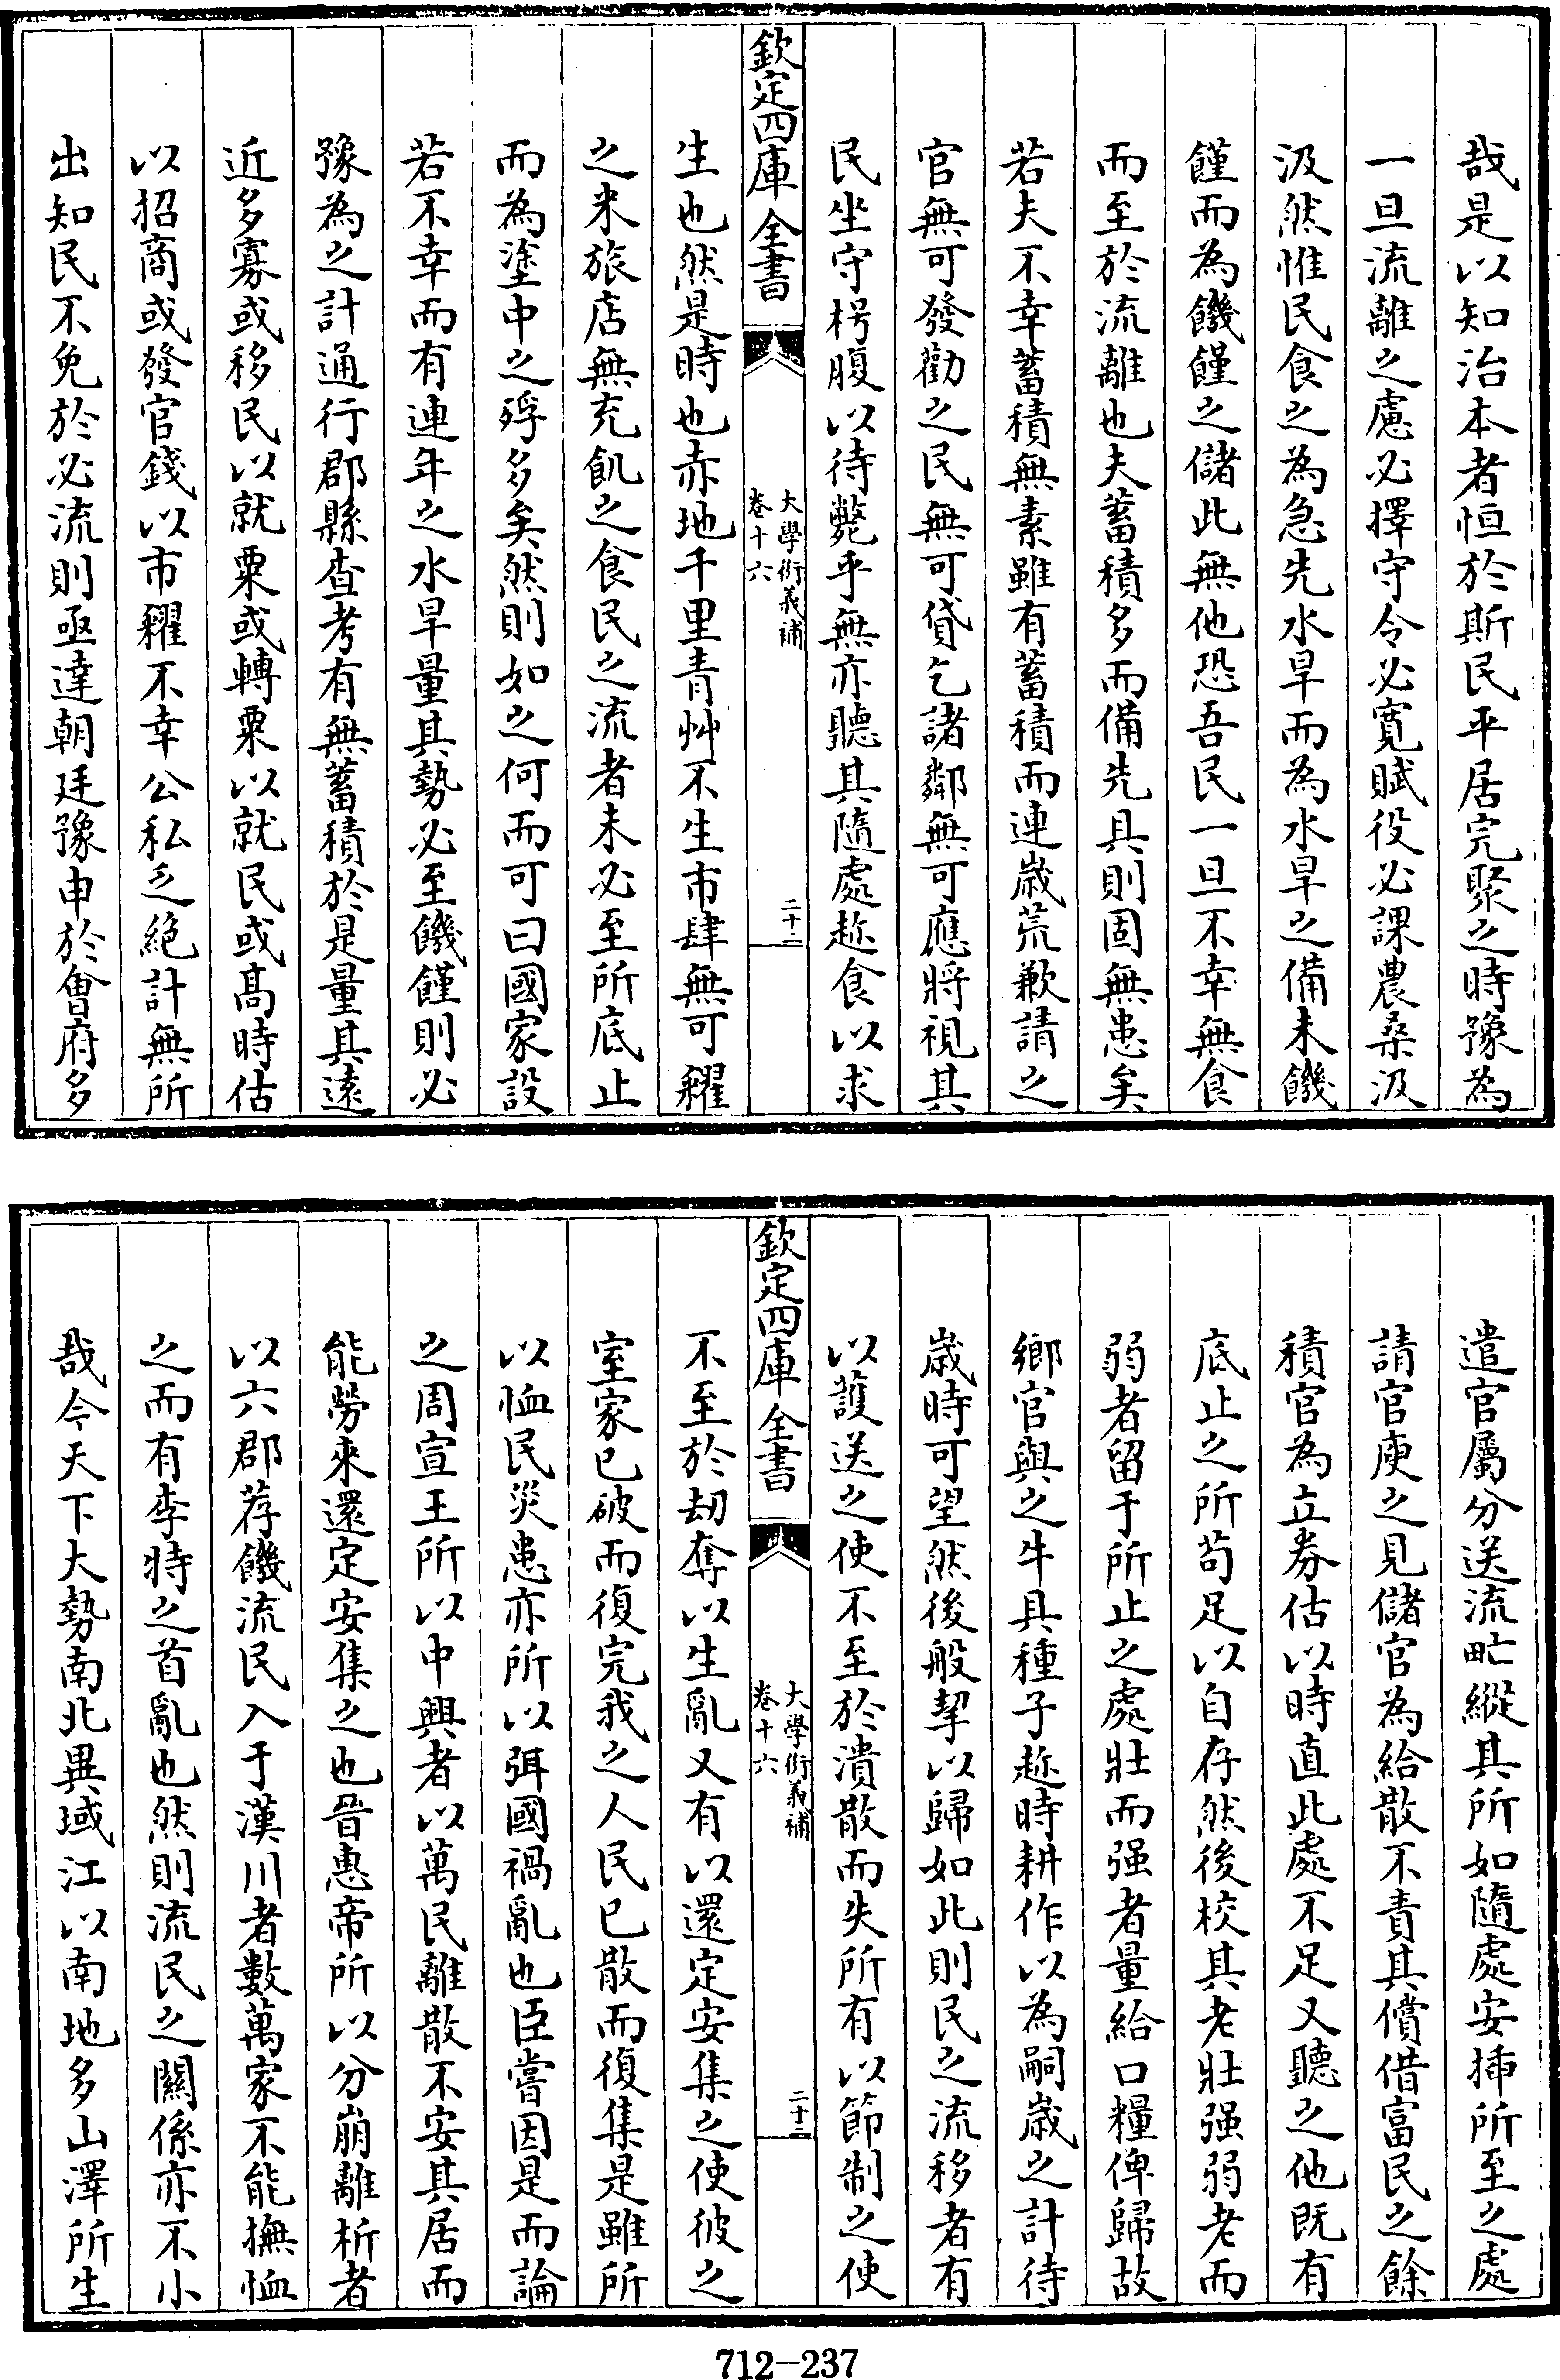 哉是以知治本者恒於斯民平居完聚之時豫為
一旦流離之慮必擇守令必寛賦役必課農桑汲
汲然惟民食之為急先水旱而為水旱之備未饑
饉而為饑饉之儲此無他恐吾民一旦不幸無食
而至於流離也夫蓄積多而備先具則固無患矣
若夫不幸蓄積無素雖有蓄積而連歲荒歉請之
官無可發勸之民無可貸乞諸鄰無可應將視其
民坐守枵腹以待斃乎無亦聽其隨處趂食以求
欽定四庫全書
大學衍義補
卷十六
二十二
生也然是時也赤地千里青艸不生市肆無可糴
之米旅店無充飢之食民之流者未必至所底止
而為塗中之殍多矣然則如之何而可曰國家設
若不幸而有連年之水旱量其勢必至饑饉則必
豫為之計通行郡縣查考有無蓄積於是量其遠
近多寡或移民以就粟或轉粟以就民或髙時估
以招商或發官錢以市糴不幸公私乏絕計無所
出知民不免於必流則亟達朝廷豫申於㑹府多
遣官屬分送流甿縱其所如隨處安揷所至之處
請官庾之見儲官為給散不責其償借富民之餘
積官為立劵估以時直此處不足又聽之他既有
底止之所苟足以自存然後校其老壯强弱老而
弱者留于所止之處壯而强者量給口糧俾歸故
鄉官與之牛具種子趂時耕作以為嗣歲之計待
歲時可望然後般挈以歸如此則民之流移者有
以護送之使不至於潰散而失所有以節制之使
欽定四庫全書
大學衍義補
卷十六
二十三
不至於刼奪以生亂又有以還定安集之使彼之
室家已破而復完我之人民已散而復集是雖所
以恤民災患亦所以弭國禍亂也臣嘗因是而論
之周宣王所以中興者以萬民離散不安其居而
能勞來還定安集之也晉惠帝所以分崩離析者
以六郡荐饑流民入于漢川者數萬家不能撫恤
之而有李特之首亂也然則流民之關係亦不小
哉今天下大勢南北異域江以南地多山澤所生
712-237